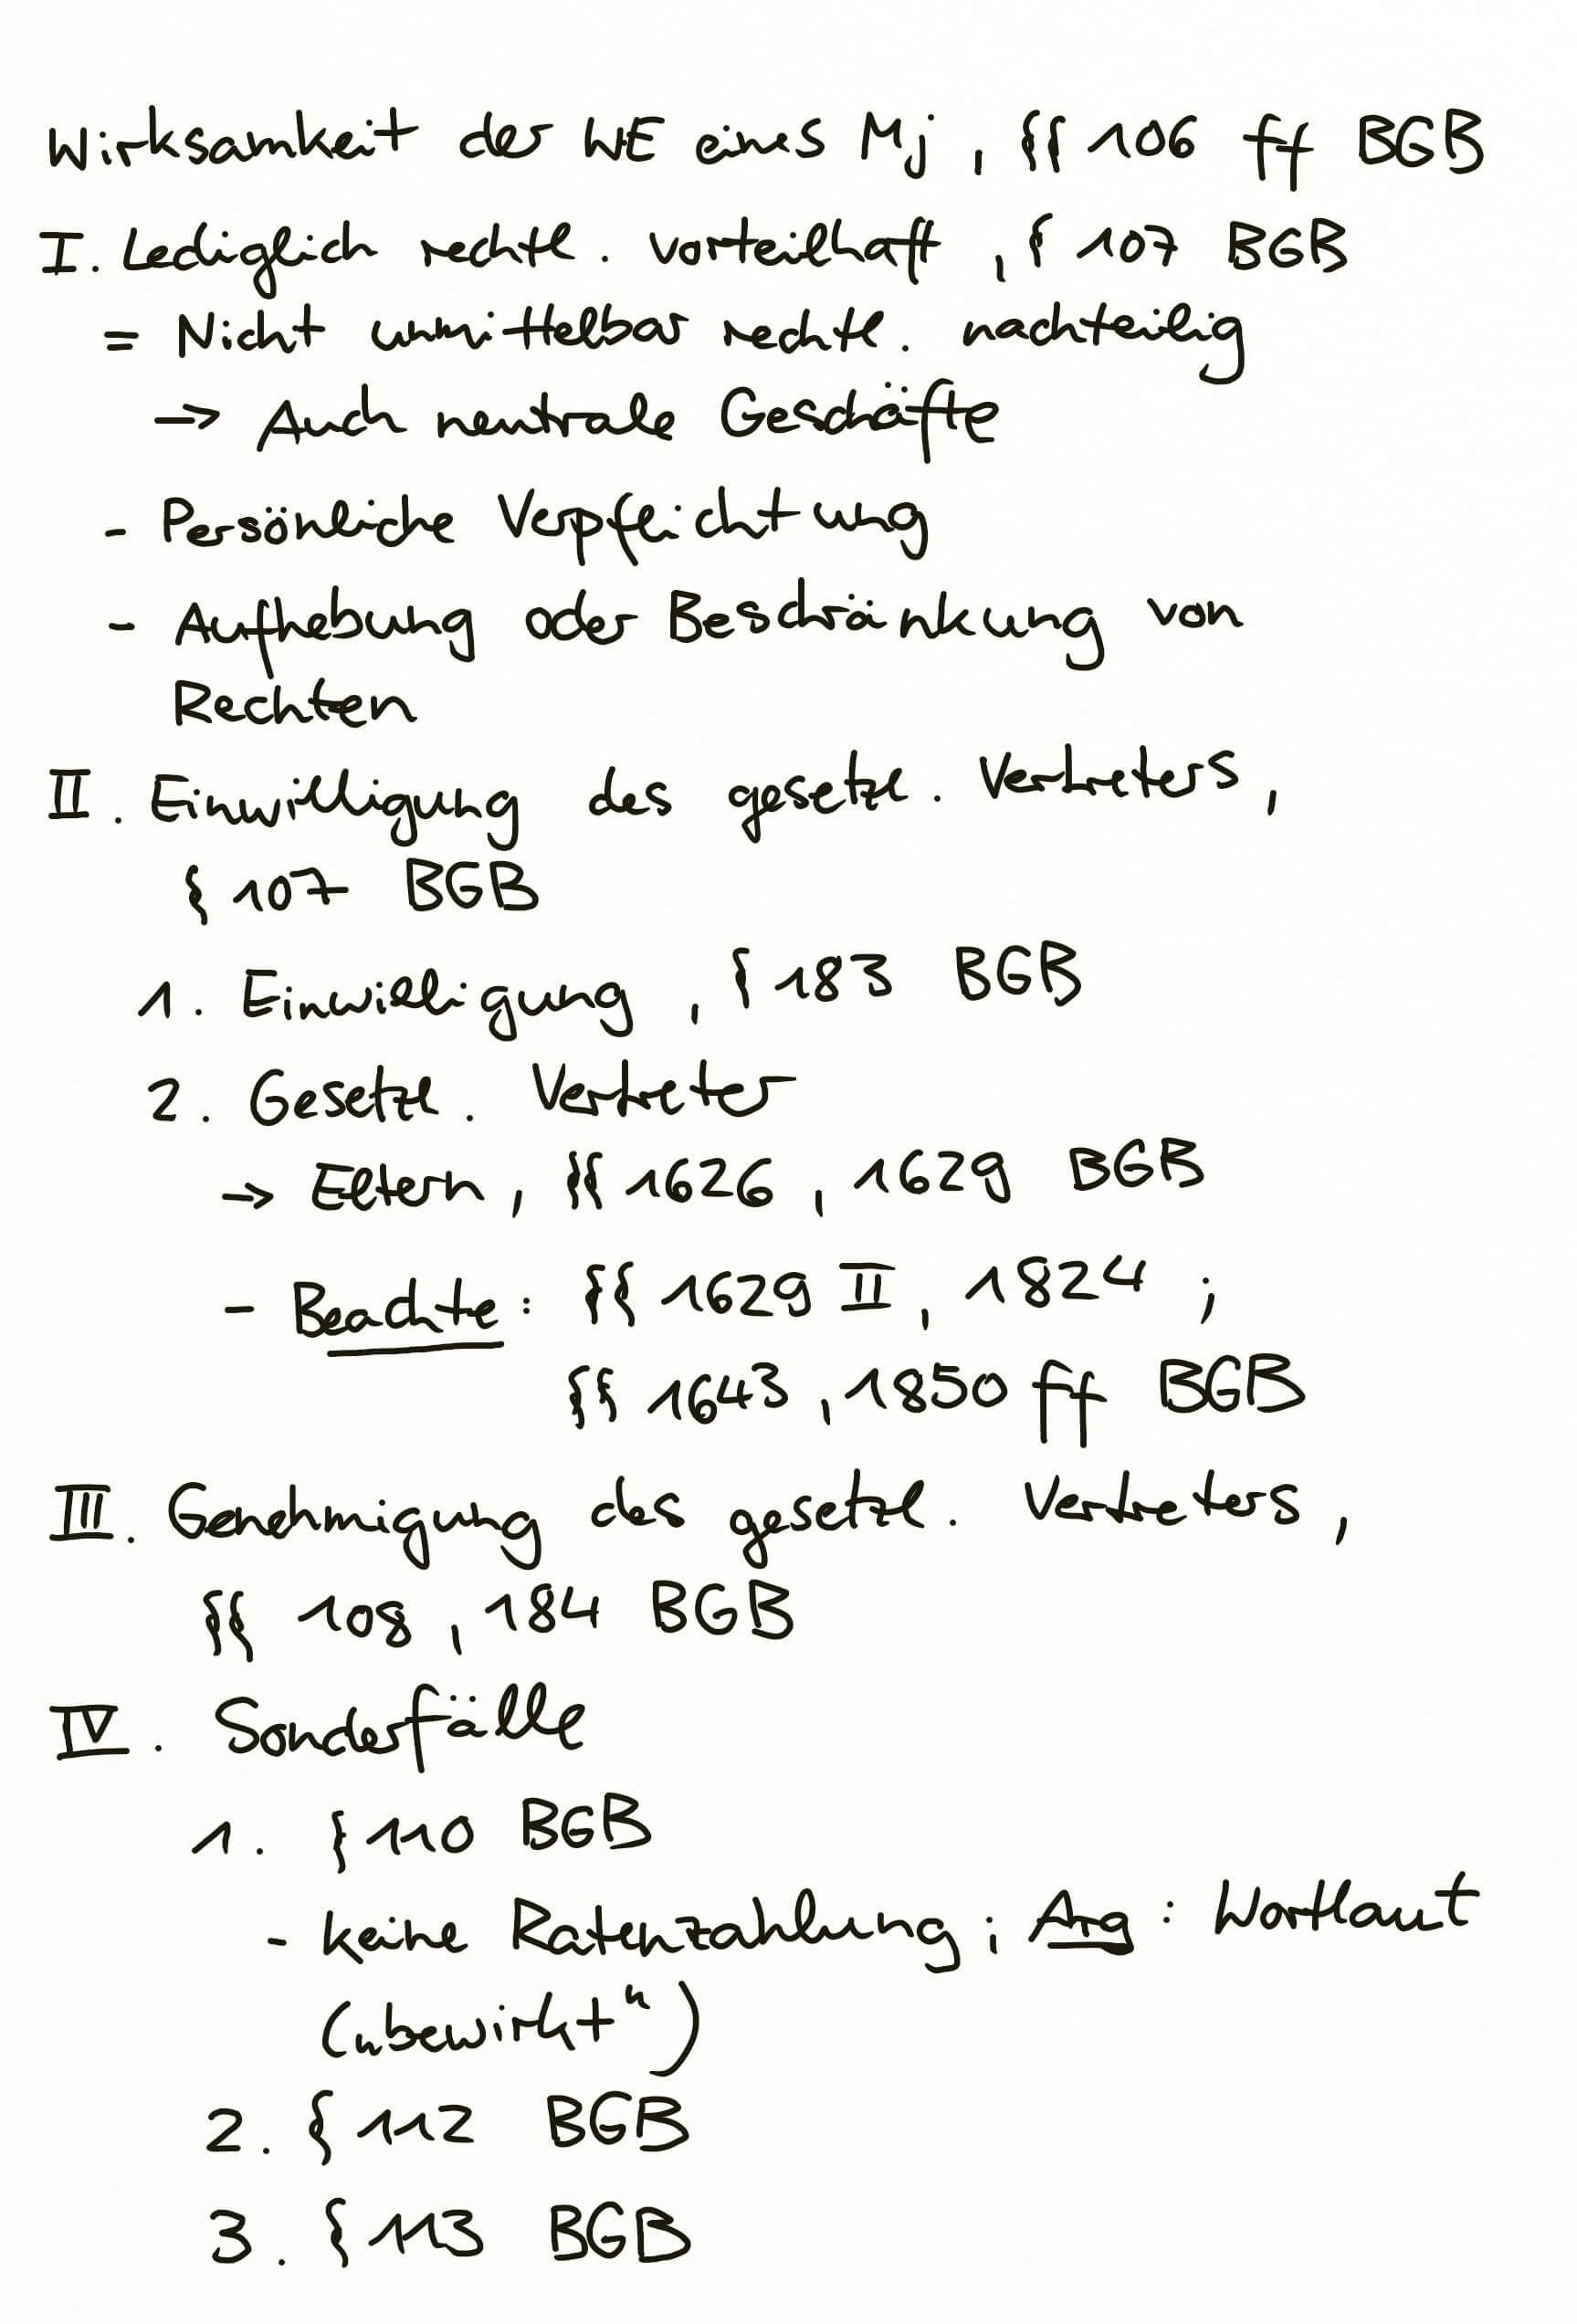 Wirksamkeit der WE eines Mj, §§ 106 ff BGB
I. Lediglich rechtl. vorteilhaft, § 107 BGB
= Nicht unmittelbar rechtl. nachteilig
→ Auch neutrale Geschäfte
- Persönliche Verpflichtung
- Aufhebung oder Beschränkung von
Rechten
II. Einwilligung des gesetzl. Vertreters,
§ 107 BGB
1. Einwilligung, § 183 BGB
2. Gesetzl. Vertreter
→ Eltern, §§ 1626, 1629 BGB
- Beachte: §§ 1629 II, 1824;
§§ 1643, 1850 ff BGB
III. Genehmigung des gesetzl. Vertreters,
§§ 108, 184 BGB
IV. Sonderfälle
1. § 110 BGB
- keine Ratenzahlung; Arg: Wortlaut
(„bewirkt“)
2. § 112 BGB
3. § 113 BGB